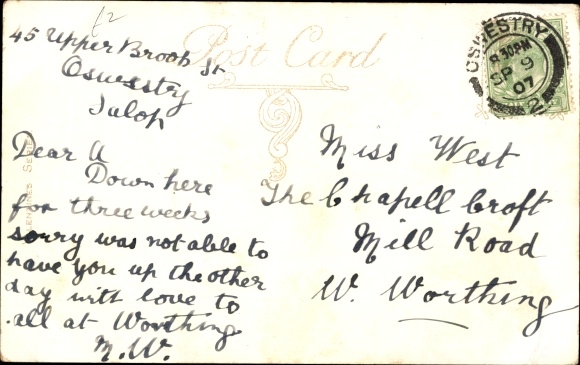 £2
Post Card
45 Upper Brook St
Oswestry
Salop
Dear A
Down here
for three weeks
sorry was not able to
have you up the other
day with love to
all at Worthing
M.W.
OSWESTRY
8.30PM
SP 9
07
2
Miss West
The Chapell Croft
Mill Road
W. Worthing